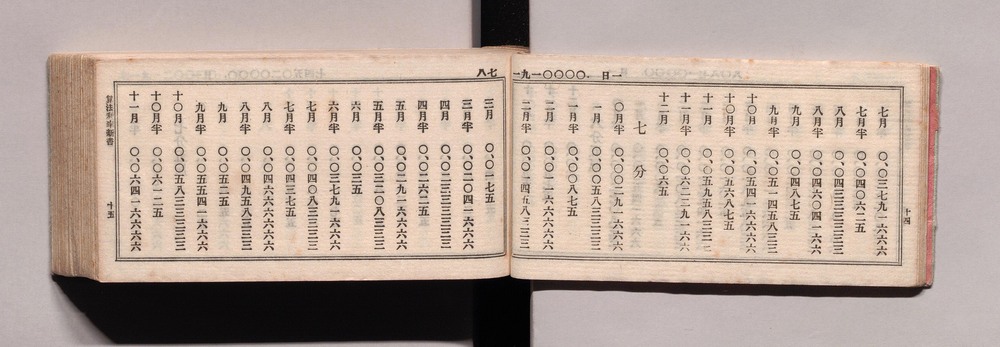 一日 、〇〇〇〇一九一七八
七月 〇、〇三七九一六六六
七月半 〇、〇四〇六二五
八月 〇、〇四三三三三三三
八月半 〇、〇四六〇四一六六
九月 〇、〇四八七五
九月半 〇、〇五一四五八三三
十〇月 〇、〇五四一六六六六
十〇月半 〇、〇五六八七五
十一月 〇、〇五九五八三三三
十一月半 〇、〇六二二九一六六
十二月 〇、〇六五
七分
〇月半 〇、〇〇二九一六六六
一月 〇、〇〇五八三三三三
一月半 〇、〇〇八七五
二月 〇、〇一一六六六六六
二月半 〇、〇一四五八三三三
十四
三月 〇、〇一七五
三月半 〇、〇二〇四一六六六
四月 〇、〇二三三三三三三
四月半 〇、〇二六二五
五月 〇、〇二九一六六六六
五月半 〇、〇三二〇八三三三
六月 〇、〇三五
六月半 〇、〇三七九一六六六
七月 〇、〇四〇八三三三三
七月半 〇、〇四三七五
八月 〇、〇四六六六六六六
八月半 〇、〇四九五八三三三
九月 〇、〇五二五
九月半 〇、〇五五四一六六六
十〇月 〇、〇五八三三三三三
十〇月半 〇、〇六一二五
十一月 〇、〇六四一六六六六
十五